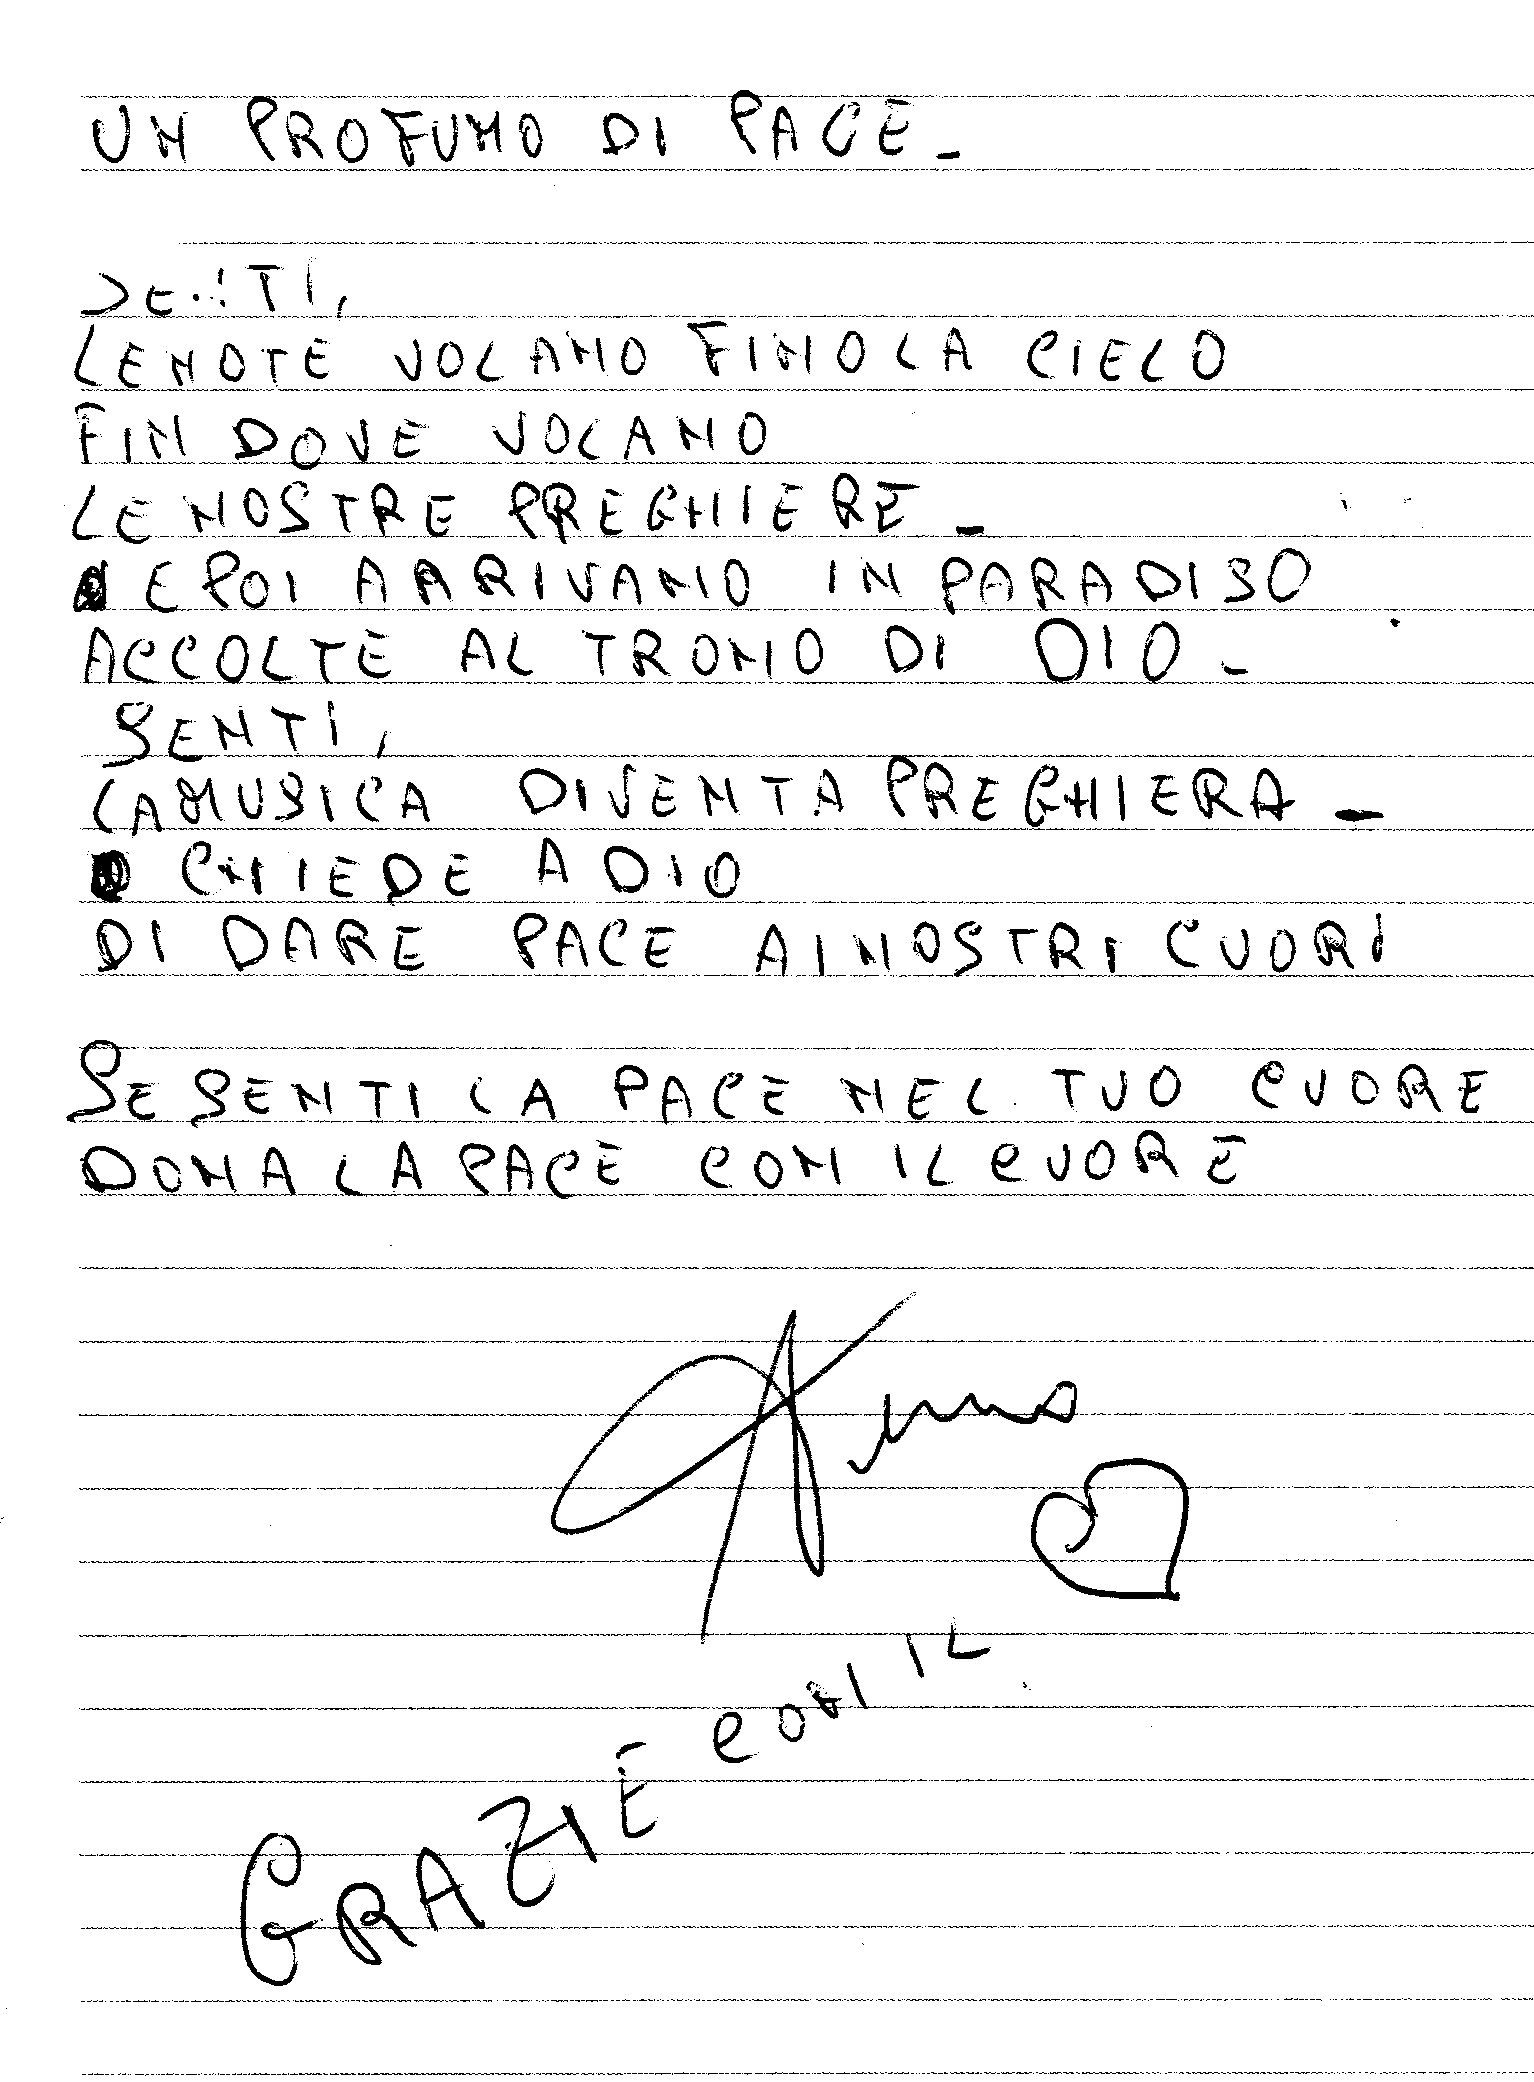 UN PROFUMO DI PACE_
SENTI,
LE NOTE VOLANO FINO LA CIELO
FIN DOVE VOLANO
LE NOSTRE PREGHIERE_
E POI ARRIVANO IN PARADISO
ACCOLTE AL TRONO DI DIO_
SENTI,
LA MUSICA DIVENTA PREGHIERA_
CHIEDE A DIO
DI DARE PACE AI NOSTRI CUORI
SE SENTI LA PACE NEL TUO CUORE
DONA LA PACE CON IL CUORE
GRAZIE CON IL